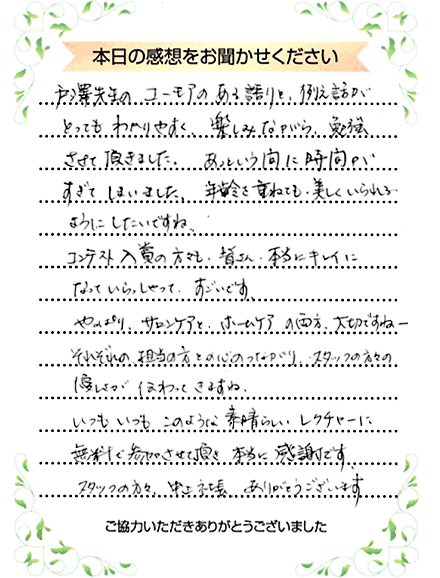 本日の感想をお聞かせください
戸澤先生の ユーモアの ある 語りと、例え話が
とっても わかりやすく、楽しみながら、勉強
させて 頂きました。 あっという間に 時間が
すぎて しまいました。 年齢を重ねても、美しくいられる
ようにしたいですね。
コンテスト入賞の方々も、皆さん、本当にキレイに
なって いらっしゃって、すごいです。
やっぱり、サロンケアと、ホームケア の両方、大切ですねー
それぞれの 担当の方との心のつながり、スタッフの方々の
優しさが 伝わって きますね。
いつも いつも このような 素晴らしい レクチャーに
無料で 参加させて頂き 本当に 感謝です。
スタッフの方々、中上社長、ありがとうございます
ご協力いただきありがとうございました